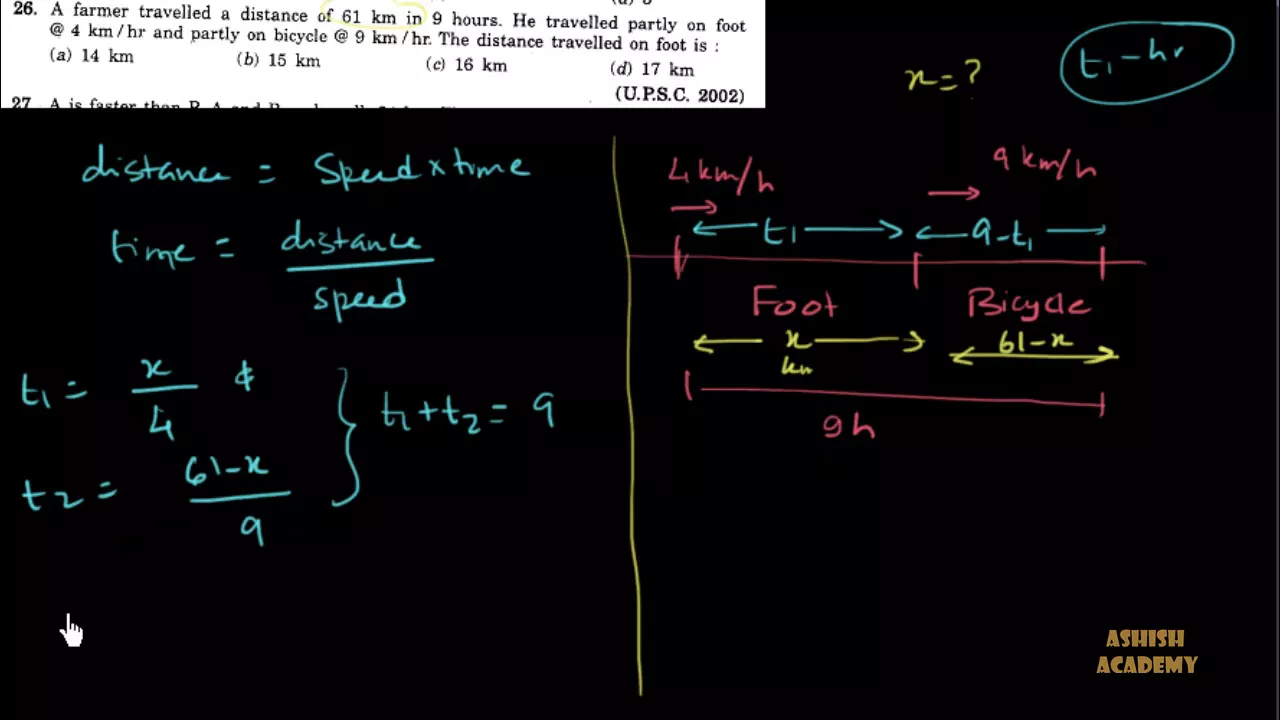 26. A farmer travelled a distance of 61 km in 9 hours. He travelled partly on foot
@ 4 km/hr and partly on bicycle @ 9 km/hr. The distance travelled on foot is :
(a) 14 km (b) 15 km (c) 16 km (d) 17 km
(U.P.S.C. 2002)
27. A is faster than B. A and B
x = ?
t1 - hr
distance = Speed × time
time = distance
speed
t1 = x
4
&
t2 = 61-x
9
t1 + t2 = 9
4 km/h
9 km/h
t1
9-t1
Foot
Bicycle
x
km
61-x
9h
ASHISH
ACADEMY